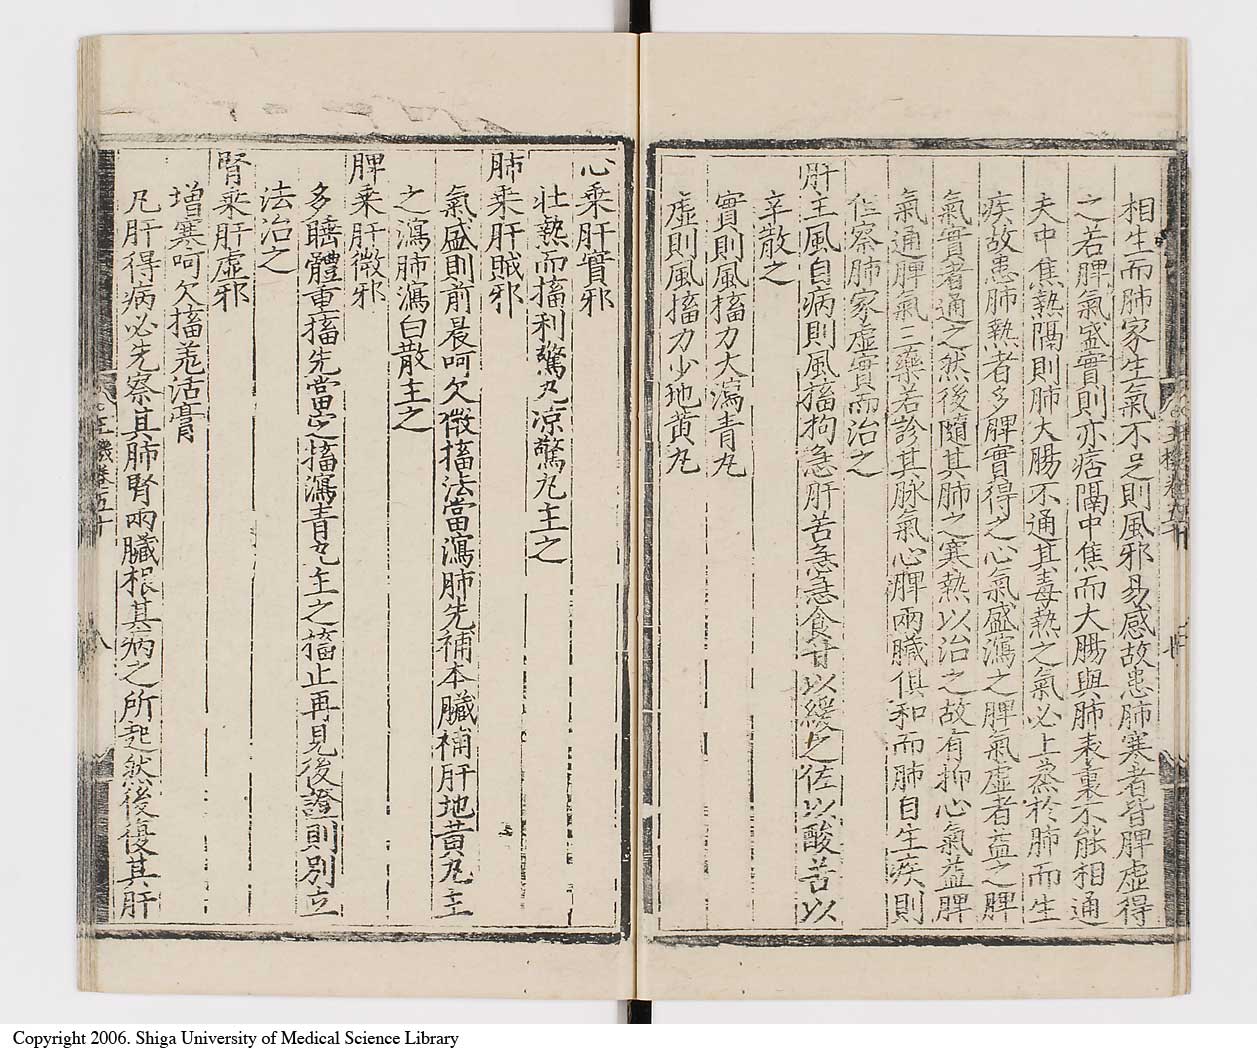 相生而肺家生氣不足則風邪易感故患肺寒者皆脾虛得
之若脾氣盛實則亦痞隔中焦而大腸與肺表裏不能相通
夫中焦熱隔則肺大腸不通其毒熱之氣必上蒸於肺而生
疾故患肺熱者多脾實得之心氣盛瀉之脾氣虛者益之脾
氣實者通之然後隨其肺之寒熱以治之故有抑心氣益脾
氣通脾氣三藥若診其脉氣心脾兩臟俱和而肺自生疾則
但察肺家虛實而治之
肝主風自病則風搐拘急肝苦急急食甘以緩之佐以酸苦以
辛散之
實則風搐力大瀉青丸
虛則風搐力少地黃丸
心乘肝實邪
壯熱而搐利驚丸凉驚丸主之
肺乘肝賊邪
氣盛則前晨呵欠微搐法當瀉肺先補本臟補肝地黃丸主
之瀉肺瀉白散主之
脾乘肝微邪
多睡體重搐先當定搐瀉青丸主之搐止再見後證則別立
法治之
腎乘肝虛邪
增寒呵欠搐羗活膏
凡肝得病必先察其肺腎兩臟根其病之所起然後復其肝
八
Copyright 2006. Shiga University of Medical Science Library